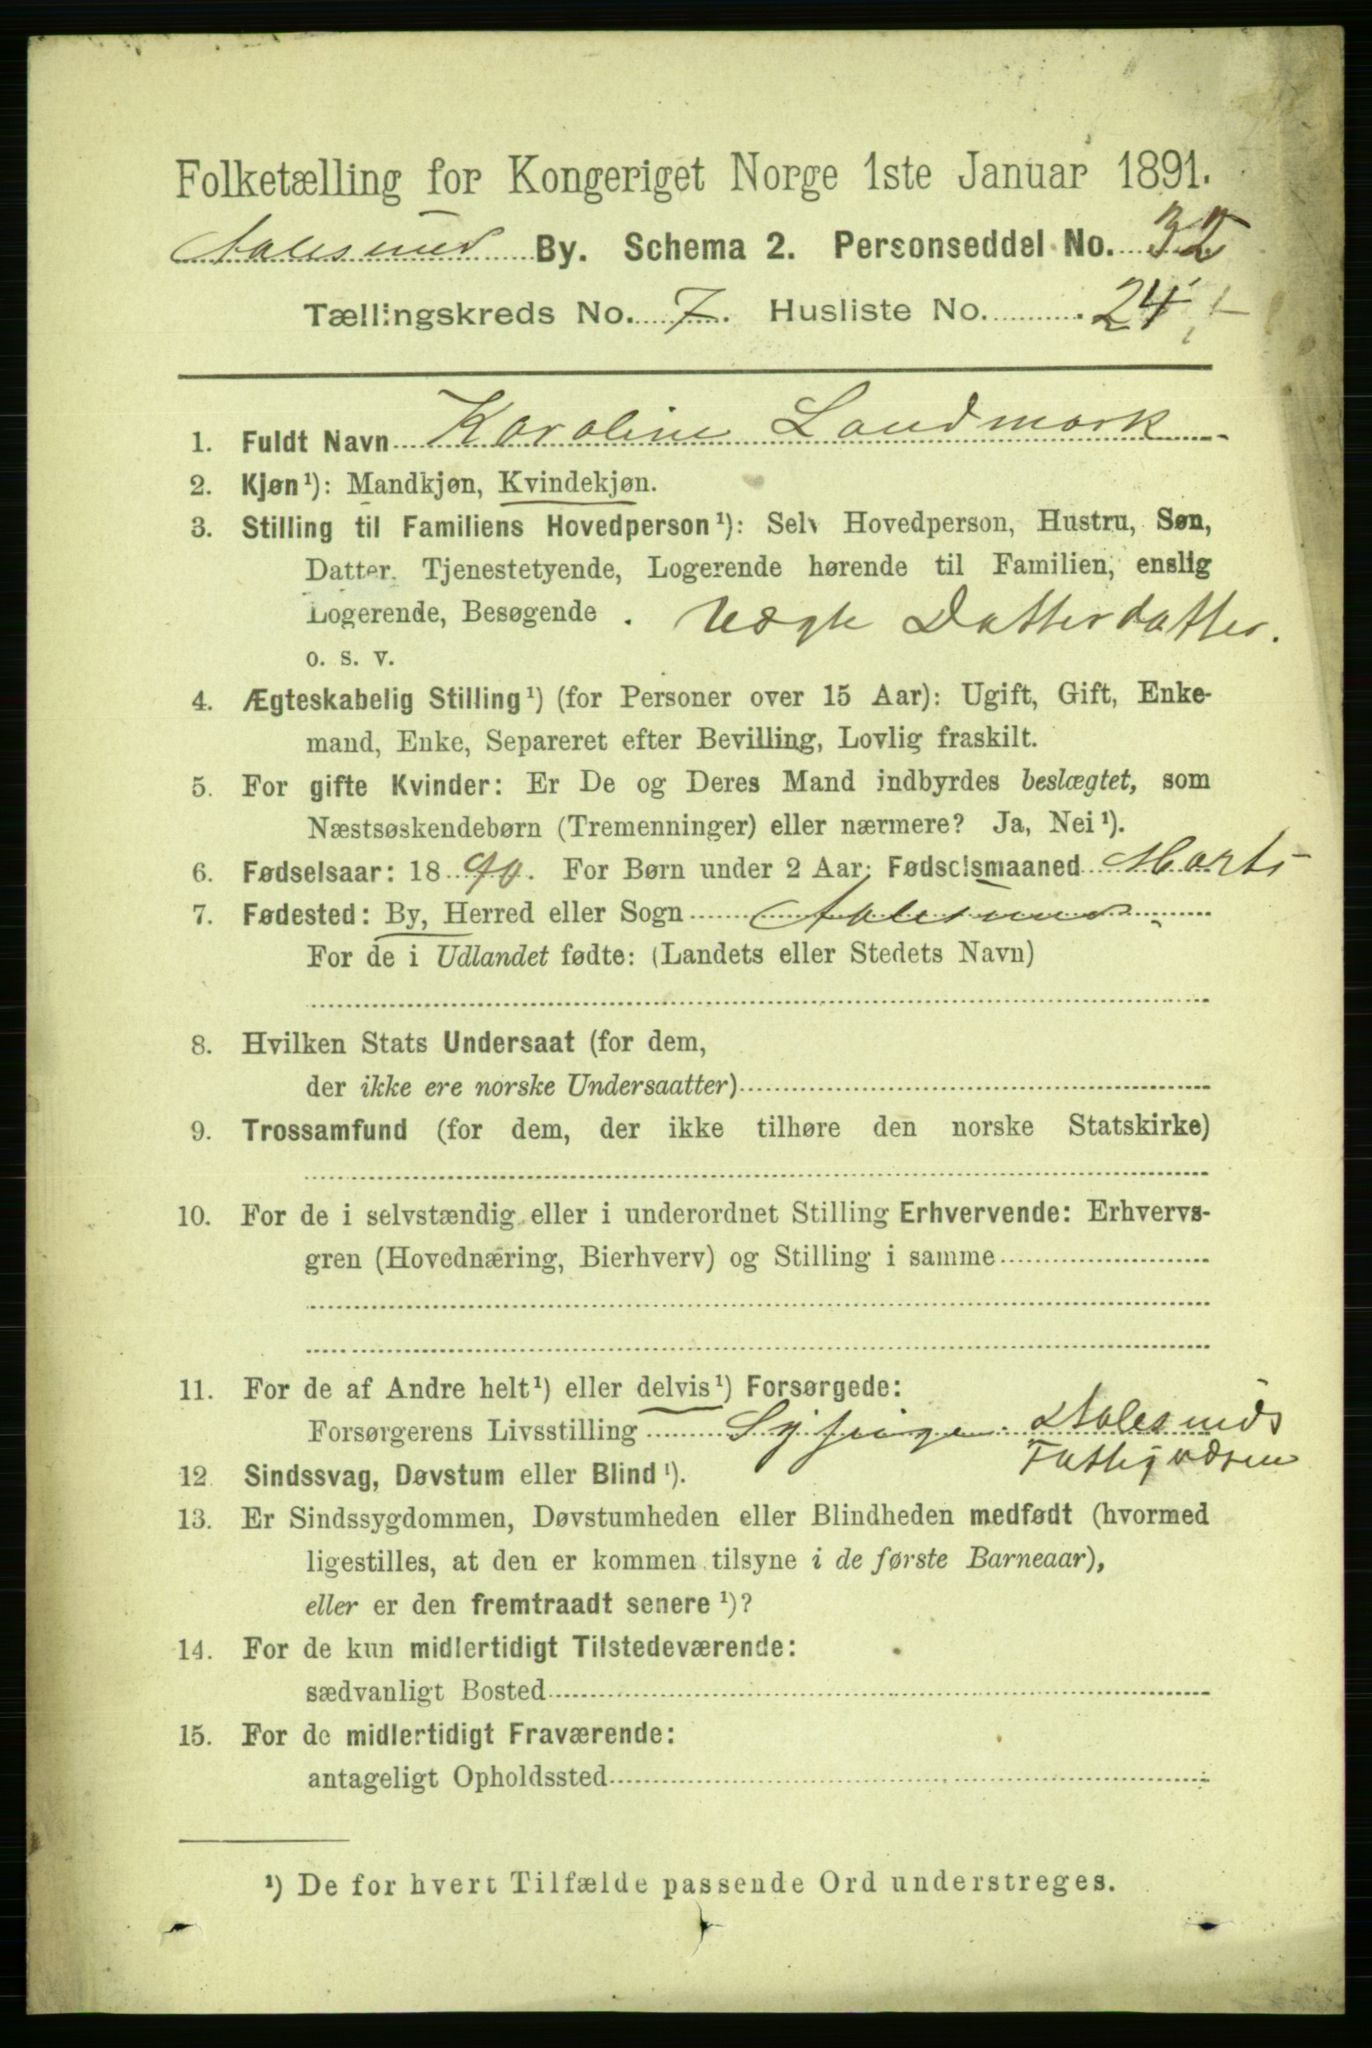 Folketælling for Kongeriget Norge 1ste Januar 1891.
Aalesund By. Schema 2. Personseddel No. 32
Tællingskreds No. 7. Husliste No. 24
1. Fuldt Navn Karoline Landmark
2. Kjøn¹): Mandkjøn, Kvindekjøn.
3. Stilling til Familiens Hovedperson¹): Selv Hovedperson, Hustru, Søn,
Datter, Tjenestetyende, Logerende hørende til Familien, enslig
Logerende, Besøgende . Uægte Datterdatter.
o. s. v.
4. Ægteskabelig Stilling¹) (for Personer over 15 Aar): Ugift, Gift, Enke-
mand, Enke, Separeret efter Bevilling, Lovlig fraskilt.
5. For gifte Kvinder: Er De og Deres Mand indbyrdes beslægtet, som
Næstsøskendebørn (Tremenninger) eller nærmere? Ja, Nei¹).
6. Fødselsaar: 1890. For Børn under 2 Aar: Fødselsmaaned Marts
7. Fødested: By, Herred eller Sogn Aalesund
For de i Udlandet fødte: (Landets eller Stedets Navn)
8. Hvilken Stats Undersaat (for dem,
der ikke ere norske Undersaatter)
9. Trossamfund (for dem, der ikke tilhøre den norske Statskirke)
10. For de i selvstændig eller i underordnet Stilling Erhvervende: Erhvervs-
gren (Hovednæring, Bierhverv) og Stilling i samme
11. For de af Andre helt¹) eller delvis¹) Forsørgede:
Forsørgerens Livsstilling Sypige. Aalesunds
Fattigvæsen
12 Sindssvag, Døvstum eller Blind¹).
13. Er Sindssygdommen, Døvstumheden eller Blindheden medfødt (hvormed
ligestilles, at den er kommen tilsyne i de første Barneaar),
eller er den fremtraadt senere¹)?
14. For de kun midlertidigt Tilstedeværende:
sædvanligt Bosted
15. For de midlertidigt Fraværende:
antageligt Opholdssted
¹) De for hvert Tilfælde passende Ord understreges.